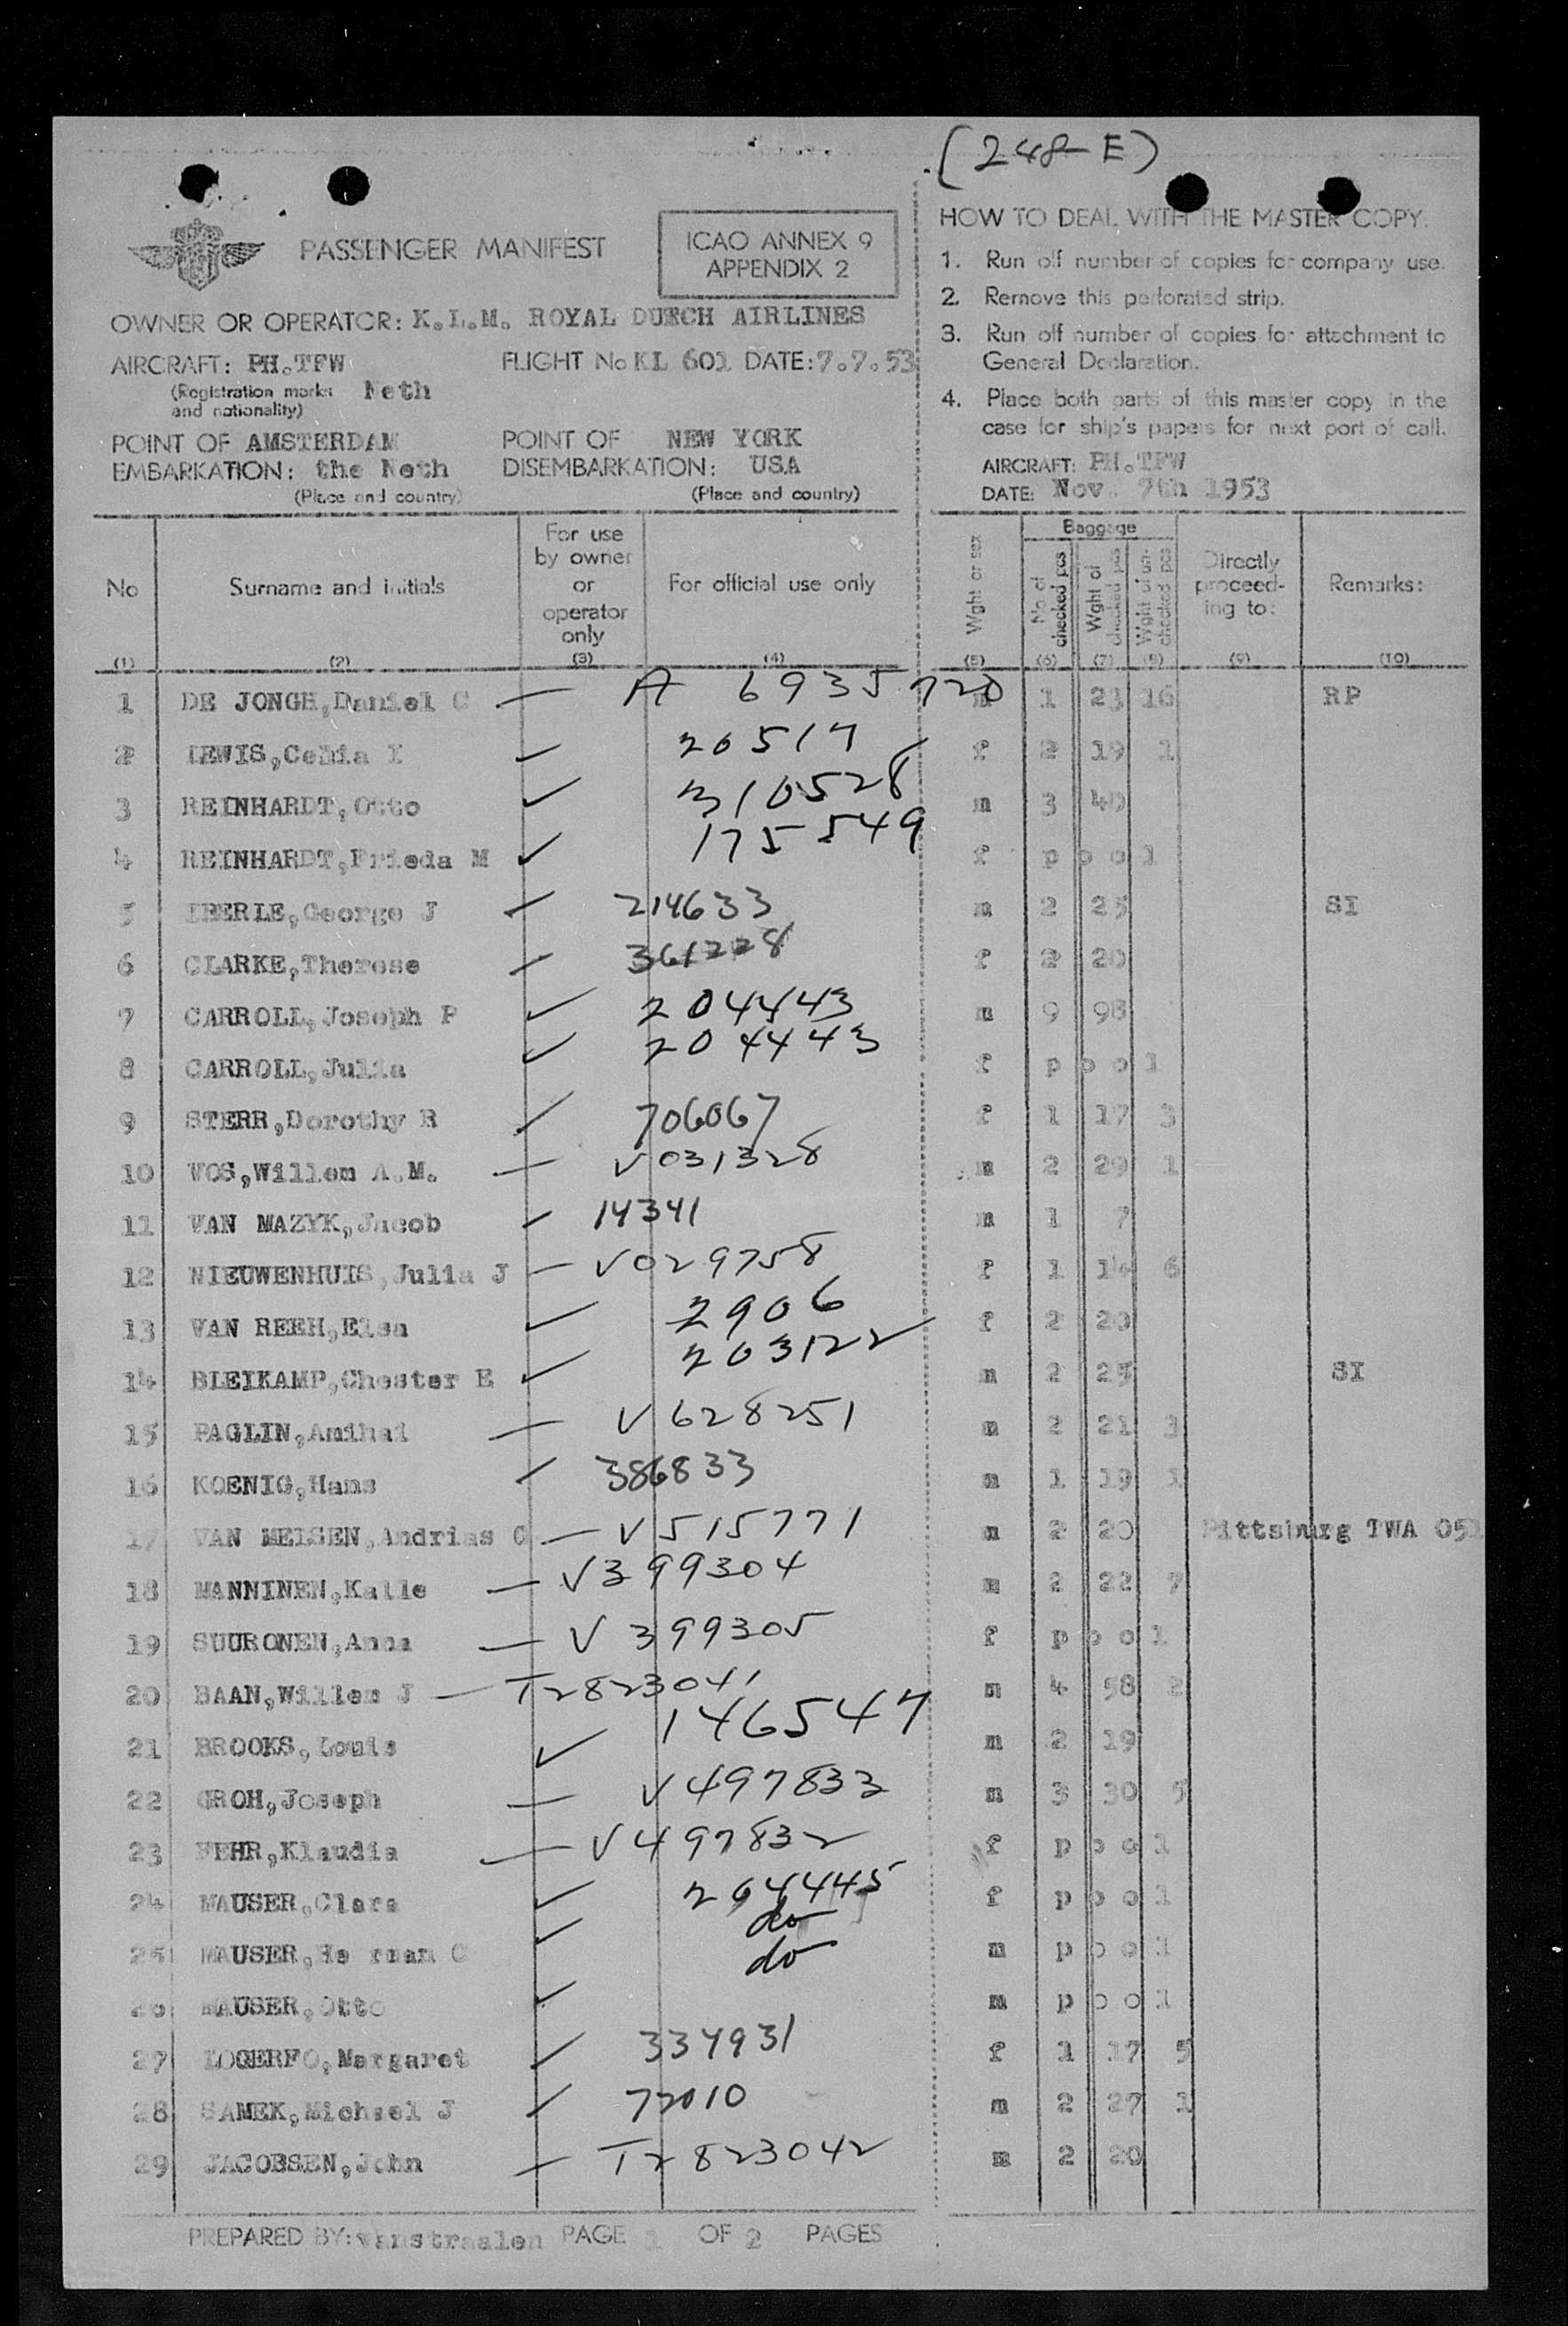 (248-E)
PASSENGER MANIFEST
ICAO ANNEX 9
APPENDIX 2
OWNER OR OPERATOR: K.L.M. ROYAL DUTCH AIRLINES
AIRCRAFT: PH.TFW FLIGHT No KL 601 DATE: 7.7.53
(Registration marks Neth
and nationality)
POINT OF AMSTERDAM POINT OF NEW YORK
EMBARKATION: the Neth DISEMBARKATION: USA
(Place and country) (Place and country)
HOW TO DEAL WITH THE MASTER COPY.
1. Run off number of copies for company use.
2. Remove this perforated strip.
3. Run off number of copies for attachment to
General Declaration.
4. Place both parts of this master copy in the
case for ship's papers for next port of call.
AIRCRAFT: PH.TFW
DATE: Nov. 7th 1953
No Surname and initials For use by owner or operator only For official use only Wght or sex Baggage No of checked pcs Wght of checked pcs Wght of un-checked pcs Directly proceed-ing to: Remarks:
(1) (2) (3) (4) (5) (6) (7) (8) (9) (10)
1 DE JONGH,Daniel C — A 6935720 m 1 23 16 RP
2 LEWIS,Celia I 20517 f 2 19 1
3 REINHARDT,Otto ✓ 310528 m 3 40
4 REINHARDT,Frieda M ✓ 175549 f pool
5 IBERLE,George J 214633 m 2 25 SI
6 CLARKE,Therese 361228 f 2 20
7 CARROLL,Joseph P ✓ 204443 m 9 98
8 CARROLL,Julia ✓ 204443 f pool
9 STERR,Dorothy R 706067 f 1 17 3
10 VOS,Willem A.M. — V031328 m 2 29 1
11 VAN MAZYK,Jacob 14341 m 1 7
12 NIEUWENHUIS,Julia J — V029758 f 1 14 6
13 VAN REEH,Elsa ✓ 2906 f 2 20
14 BLEIKAMP,Chester E ✓ 203122 m 2 25 SI
15 PAGLIN,Amihai — V628251 m 2 21 3
16 KOENIG,Hans 386833 m 1 19 1
17 VAN MELSEN,Andrias C — V515771 m 2 20 Pittsburg TWA 051
18 MANNINEN,Kalle — V399304 m 2 22 7
19 SUURONEN,Anna — V399305 f pool
20 BAAN,Willem J — T2823041 m 4 58 2
21 BROOKS,Louis ✓ 146547 m 2 19
22 GROH,Joseph — V497833 m 3 30 5
23 FEHR,Klaudia — V497832 f pool
24 MAUSER,Clara ✓ 204445 f pool
25 MAUSER,He rman C ✓ do m pool
26 MAUSER,Otto ✓ do m pool
27 LOGERFO,Margaret 334931 f 1 17 5
28 SAMEK,Michael J 72010 m 2 27 1
29 JACOBSEN,John — T2823042 m 2 20
PREPARED BY: vanstraalen PAGE 1 OF 2 PAGES